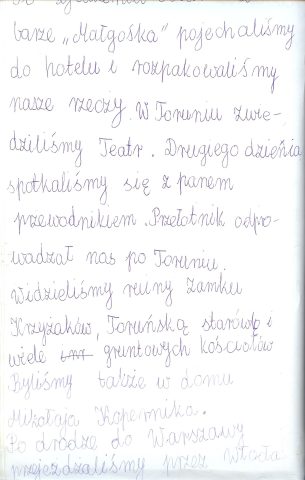 barze „Małgośka” pojechaliśmy
do hotelu i rozpakowaliśmy
nasze rzeczy. W Toruniu zwie-
dziliśmy Teatr. Drugiego dzieńia
spotkaliśmy się z panem
przewodnikiem. Przełotnik odpro-
wadzał nas po Toruniu.
Widzieliśmy ruiny zamku
Krzyżaków, Toruńską starówkę i
wiele gruntowych kościołów
Byliśmy także w domu
Mikołaja Kopernika.
Po drodze do Warszawy
przejeżdżaliśmy przez Włocła